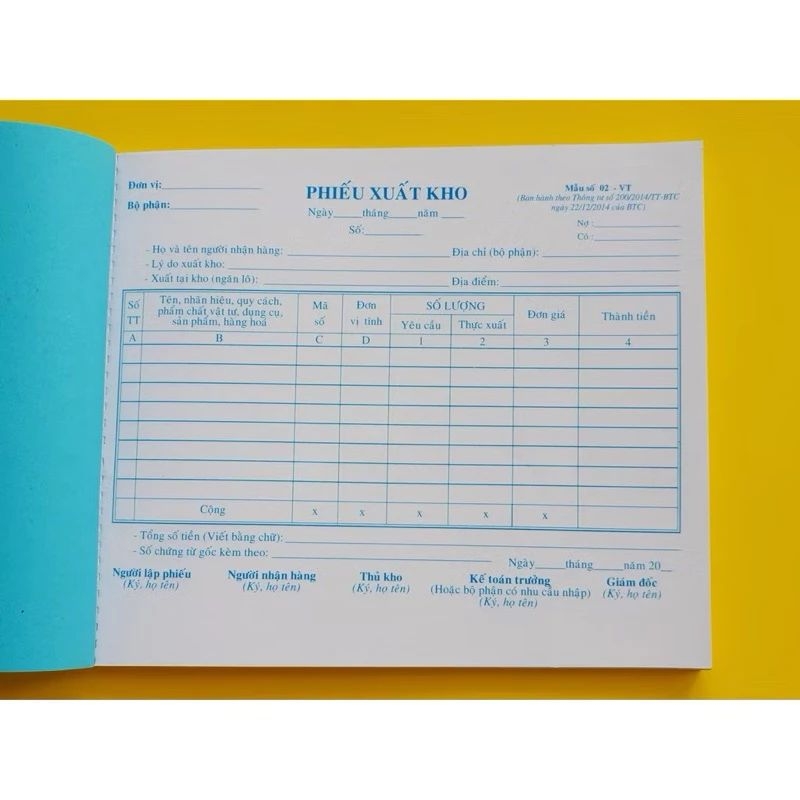 Đơn vị:
PHIẾU XUẤT KHO
Mẫu số 02 - VT
Bộ phận:
(Ban hành theo Thông tư số 200/2014/TT-BTC
ngày 22/12/2014 của BTC)
Ngày tháng năm
Số:
Nợ :
Có :
- Họ và tên người nhận hàng: Địa chỉ (bộ phận):
- Lý do xuất kho:
- Xuất tại kho (ngăn lô): Địa điểm:
Số TT
Tên, nhãn hiệu, quy cách,
phẩm chất vật tư, dụng cụ,
sản phẩm, hàng hoá
Mã số
Đơn vị tính
SỐ LƯỢNG
Yêu cầu Thực xuất
Đơn giá
Thành tiền
A B C D 1 2 3 4
Cộng x x x x x
- Tổng số tiền (Viết bằng chữ):
- Số chứng từ gốc kèm theo:
Ngày tháng năm 20
Người lập phiếu Người nhận hàng Thủ kho Kế toán trưởng Giám đốc
(Ký, họ tên) (Ký, họ tên) (Ký, họ tên) (Hoặc bộ phận có nhu cầu nhập) (Ký, họ tên)
(Ký, họ tên)